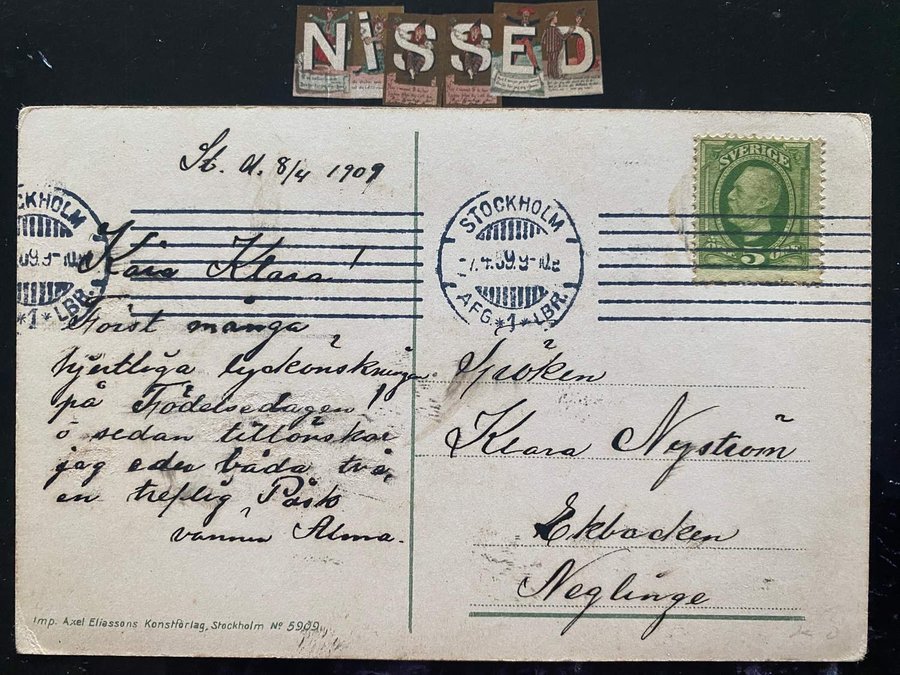 NiSSED
St. d. 8/4 1909
SVERIGE
5
STOCKHOLM
STOCKHOLM
7.4.09.9-10
*1* LBR.
AFG. *1* LBR.
Kära Klara!
Först många
hjertliga lyckönskningar
på Födelsedagen
o sedan tillönskar
jag eder båda två
en treflig Påsk
vännen Alma.
Fröken
Klara Nyström
Ekbacken
Neglinge
Imp. Axel Eliassons Konstförlag, Stockholm No 5909